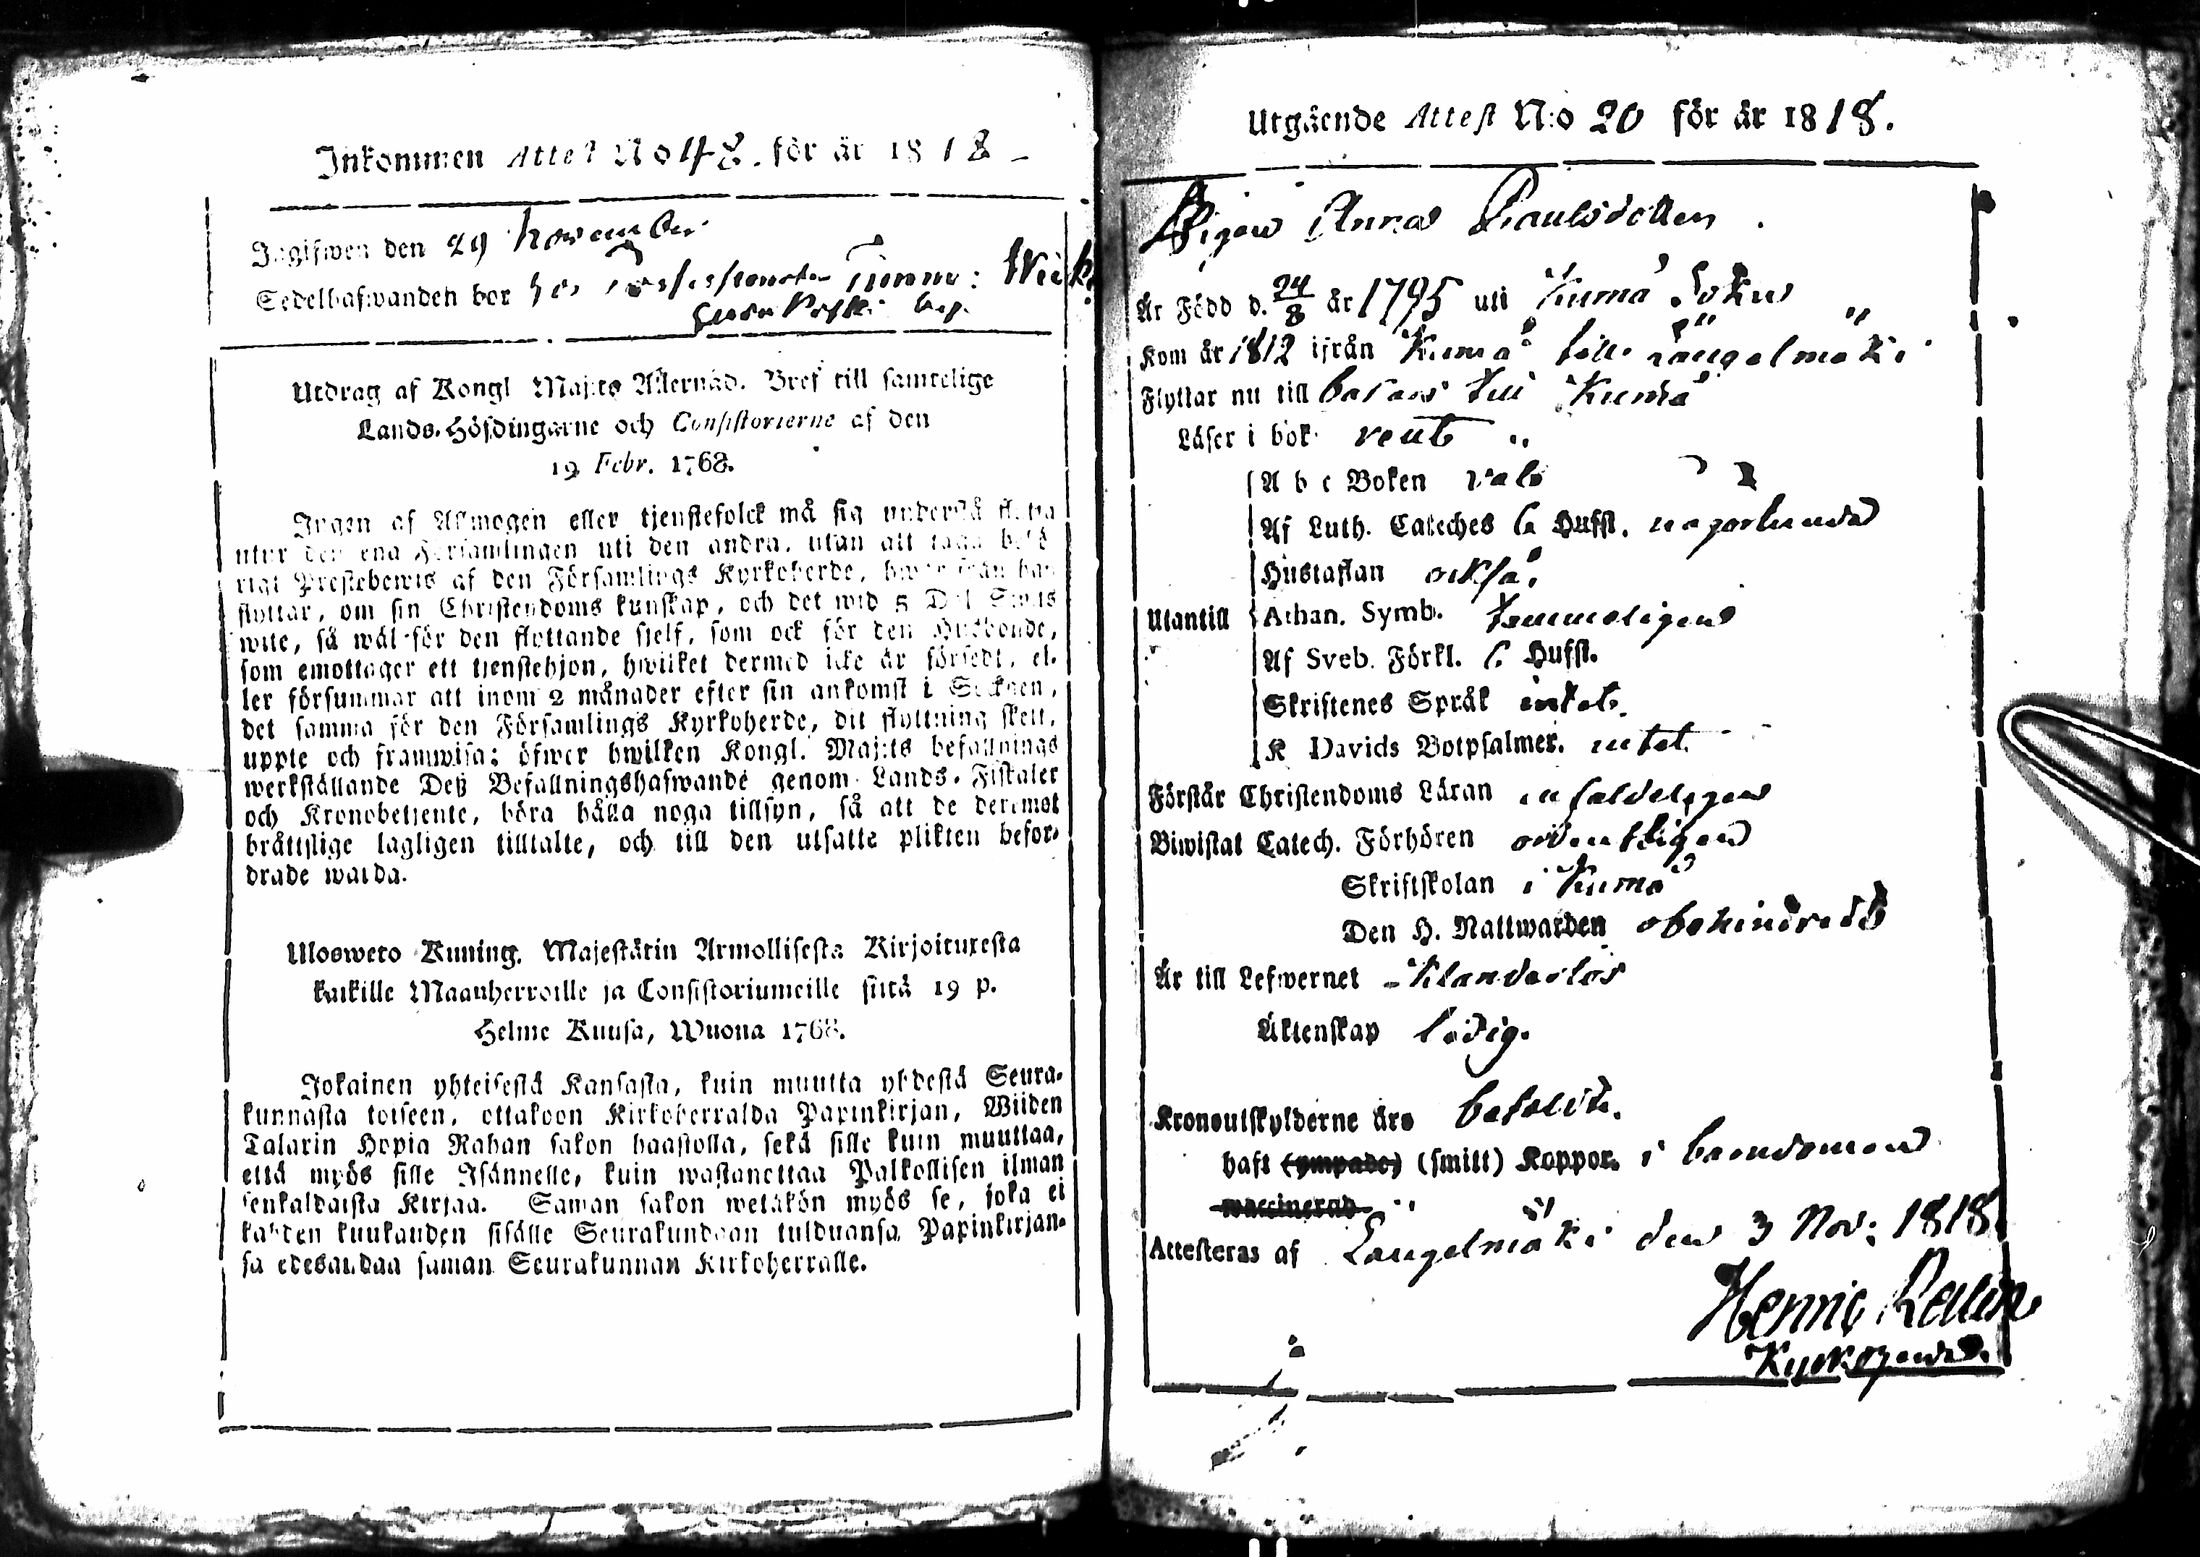 Inkommen Attest No 48. för år 1818
Ingifwen den 29 November
Sedelhafwanden bor hos
Utdrag af Kongl Maj:ts Allernåd. Bref till samtelige
Lands-Höfdingarne och Consistorierne af den
19 Febr. 1768.
Ingen af Allmogen eller tjenstefolck må sig understå flytta
utur den ena Församlingen uti den andra, utan att taga behö-
rigt Prestebewis af den Församlings Kyrkoherde, hwar ifrån han
flyttar, om sin Christendoms kunskap, och det wid 5 Dal. Smts
wite, så wäl för den flyttande sjelf, som ock för den Husbonde,
som emottager ett tjenstehjon, hwilket dermed icke är försedt, el-
ler försummar att inom 2 månader efter sin ankomst i Socknen,
det samma för den Församlings Kyrkoherde, dit flyttning skett,
uppte och framwisa; öfwer hwilken Kongl. Maj:ts befallnings
werkställande Deß Befallningshafwande genom Lands-Fiskaler
och Kronobetjente, böra hålla noga tillsyn, så att de deremot
bråttslige lagligen tilltalte, och till den utsatte plikten befor-
drade warda.
Ulosweto Kuning. Majestätin Armollisesta Kirjoituxesta
kaikille Maanherroille ja Consistoriumeille siitä 19 p.
Helme Kuusa, Wuona 1768.
Jokainen yhteisestä Kansasta, kuin muutta yhdestä Seura-
kunnasta toiseen, ottakoon Kirkoherralda Papinkirjan, Wiiden
Talarin Hopia Rahan sakon haastolla, sekä sille kuin muuttaa,
että myös sille Isännelle, kuin wastanottaa Palkollisen ilman
senkaldaista Kirjaa. Saman sakon wetäkön myös se, joka ei
kahden kuukauden sisälle Seurakundaan tulduansa Papinkirjan-
sa edesandaa saman Seurakunnan Kirkoherralle.
Utgående Attest N:o 20 för år 1818.
Pigan Anna Paulsdotter
Är Född d. 24/8 år 1795 uti Kumå Sokn
Kom år 1812 ifrån Kumå till Längelmäki
Flyttar nu till bakars till Kumå
Läser i bok rent
A b c Boken väl
Af Luth. Cateches 6 Hufst. någorlunda
Hustaflan också.
Utantill Athan. Symb. temmeligen
Af Sveb. Förkl. 6 Hufst.
Skriftenes Språk intet.
K Davids Botpsalmer. intet.
Förstår Christendoms Läran enfaldeligen
Biwistat Catech. Förhören ordentligen
Skriftskolan i Kumå
Den H. Nattwarden obehindradt
Är till Lefwernet klanderlös
Äktenskap ledig.
Kronoutskylderne äro betaldte.
haft (ympade) (smitt) Koppor. i barndomen
waccinerad
Attesteras af Längelmäki den 3 Nov: 1818
Henric
Kyrkoherde.